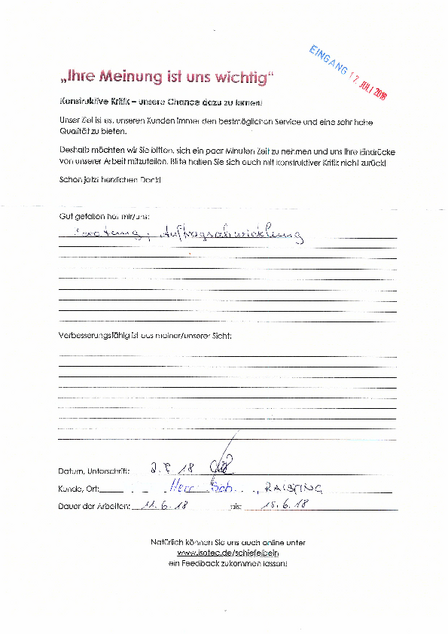 EINGANG 17. JULI 2018
„Ihre Meinung ist uns wichtig“
Konstruktive Kritik – unsere Chance dazu zu lernen!
Unser Ziel ist es, unseren Kunden immer den bestmöglichen Service und eine sehr hohe
Qualität zu bieten.
Deshalb möchten wir Sie bitten, sich ein paar Minuten Zeit zu nehmen und uns Ihre Eindrücke
von unserer Arbeit mitzuteilen. Bitte halten Sie sich auch mit konstruktiver Kritik nicht zurück!
Schon jetzt herzlichen Dank!
Gut gefallen hat mir/uns:
Auftragsabwicklung
Verbesserungsfähig ist aus meiner/unserer Sicht:
Datum, Unterschrift: 18
Kunde, Ort: Herr Sch , RAISTING
Dauer der Arbeiten: 11.6.18 bis: 15.6.18
Natürlich können Sie uns auch online unter
www.isotec.de/schiefelbein
ein Feedback zukommen lassen!